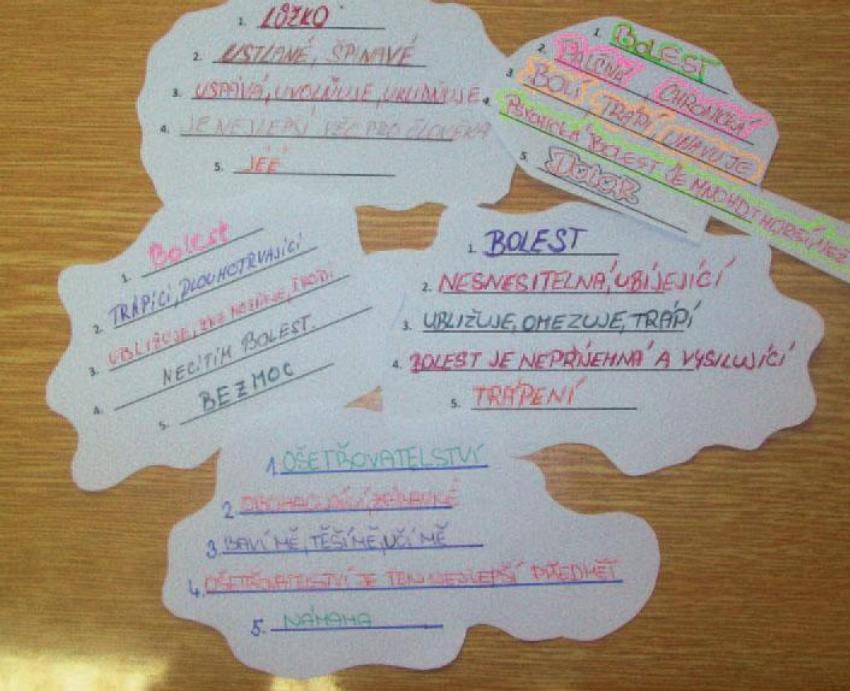 1. LŮŽKO
2. USTLANÉ, ŠPINAVÉ
3. USPÁVÁ, UVOLŇUJE, UKLIDŇUJE
4. JE NEJLEPŠÍ VĚC PRO ČLOVĚKA
5. JÉÉ
1. BOLEST
2. PALČIVÁ CHRONICKÁ
3. BOLÍ TRÁPÍ UNAVUJE
4. PSYCHICKÁ BOLEST JE MNOHDY HORŠÍ NEŽ
5. DOLOR
1. Bolest
2. TRÁPÍCÍ, DLOUHOTRVAJÍCÍ
3. UBLIŽUJE, ŠKODÍ
4. NECÍTÍM BOLEST.
5. BEZMOC
1. BOLEST
2. NESNESITELNÁ, UBÍJEJÍCÍ
3. UBLIŽUJE, OMEZUJE, TRÁPÍ
4. BOLEST JE NEPŘÍJEMNÁ A VYSILUJÍCÍ
5. TRÁPENÍ
1. OŠETŘOVATELSTVÍ
2.
3. BAVÍ MĚ, TĚŠÍ MĚ, UČÍ MĚ
4. OŠETŘOVATELSTVÍ JE TEN NEJLEPŠÍ PŘEDMĚT
5. NÁMAHA